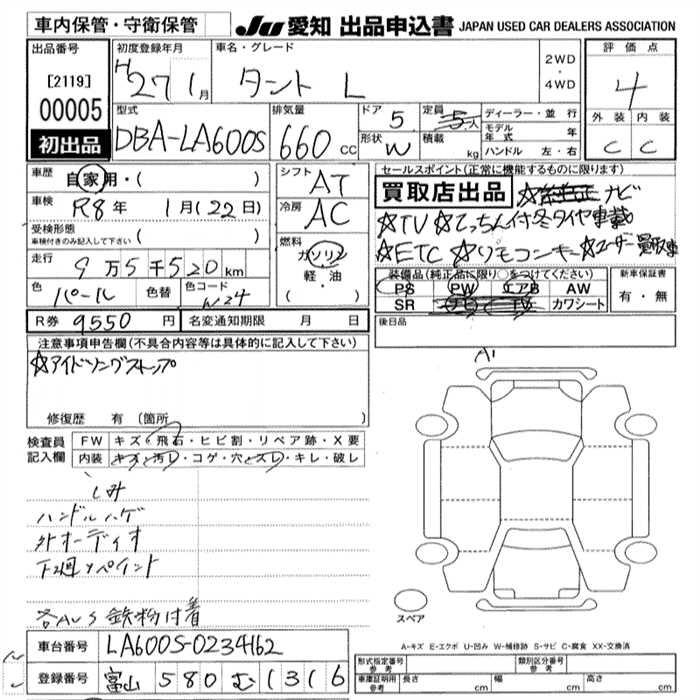 車内保管・守衛保管
JU 愛知 出品申込書 JAPAN USED CAR DEALERS ASSOCIATION
出品番号
[2119]
00005
初出品
初度登録年月
H27 1月
車名・グレード
タント L
2WD
・
4WD
評価点
4
外装 内装
C C
型式
DBA-LA600S
排気量
660 cc
ドア 5
形状 W
定員 人
積載 kg
ディーラー・並行
モデル年式 年
ハンドル 左・右
車歴 自家用・( )
車検 R8年 1月(22日)
受検形態
車検付きのみ記入して下さい ( )
走行 9万5千520km
色 パール 色替 色コード W24
R券 9550円 名変通知期限 月 日
シフト AT
冷房 AC
燃料
ガソリン
軽・油
( ・ )
セールスポイント(正常に機能するものに限ります)
買取店出品 ☆ ナビ
☆TV ☆ 冬タイヤ車載
☆ETC ☆リモコンキー ☆ユーザー買取車
装備品(純正品に限り○をつけてください)
PS PW エアB AW
SR TV カワシート
新車保証書
有・無
後日品
注意事項申告欄(不具合内容等は具体的に記入して下さい)
☆アイドリングストップ
修復歴 有(箇所 )
検査員記入欄
FW キズ・飛石・ヒビ割・リペア跡・X要
内装 キズ・汚レ・コゲ・穴・スレ・キレ・破レ
シミ
ハンドルハゲ
外オーディオ
下廻りペイント
各ALS 鉄粉付着
A1
スペア
A-キズ E-エクボ U-凹み W-補修跡 S-サビ C-腐食 XX-交換済
車台番号 LA600S-0234162
登録番号 富山 580 む 1316
形式指定番号 参考 類別区分番号 参考
車庫証明用 参考 長さ cm 幅 cm 高さ cm